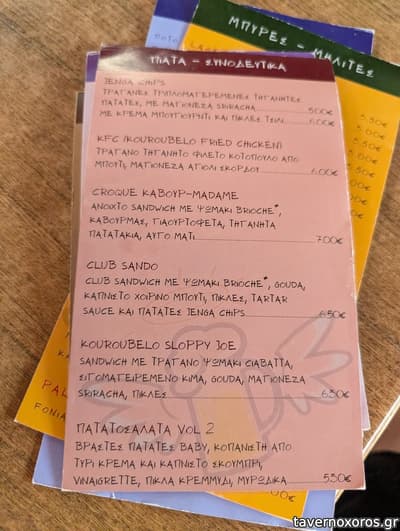 ΜΠΥΡΕΣ - ΜΗΛΙΤΕΣ
ΠΙΑΤΑ - ΣΥΝΟΔΕΥΤΙΚΑ
JENGA CHIPS
ΤΡΑΓΑΝΕΣ ΤΡΙΠΛΟΜΑΓΕΡΕΜΕΝΕΣ ΤΗΓΑΝΗΤΕΣ
ΠΑΤΑΤΕΣ, ΜΕ ΜΑΓΙΟΝΕΖΑ SRIRACHA 5.00€
ΜΕ ΚΡΕΜΑ ΜΠΟΥΓΙΟΥΡΝΤΙ ΚΑΙ ΠΙΚΛΕΣ ΤΣΙΛΙ 6.00€
KFC (KOUROUBELO FRIED CHICKEN)
ΤΡΑΓΑΝΟ ΤΗΓΑΝΗΤΟ ΦΙΛΕΤΟ ΚΟΤΟΠΟΥΛΟ ΑΠΟ
ΜΠΟΥΤΙ, ΜΑΓΙΟΝΕΖΑ ΑΓΙΟΛΙ ΣΚΟΡΔΟΥ 6.00€
CROQUE ΚΑΒΟΥΡ-MADAME
ΑΝΟΙΧΤΟ SANDWICH ΜΕ ΨΩΜΑΚΙ BRIOCHE*,
ΚΑΒΟΥΡΜΑΣ, ΓΙΑΟΥΡΤΟΦΕΤΑ, ΤΗΓΑΝΗΤΑ
ΠΑΤΑΤΑΚΙΑ, ΑΥΓΟ ΜΑΤΙ 7.00€
CLUB SANDO
CLUB SANDWICH ΜΕ ΨΩΜΑΚΙ BRIOCHE*, GOUDA,
ΚΑΠΝΙΣΤΟ ΧΟΙΡΙΝΟ ΜΠΟΥΤΙ, ΠΙΚΛΕΣ, TARTAR
SAUCE ΚΑΙ ΠΑΤΑΤΕΣ JENGA CHIPS 6.50€
KOUROUBELO SLOPPY JOE
SANDWICH ΜΕ ΤΡΑΓΑΝΟ ΨΩΜΑΚΙ CIABATTA,
ΣΙΓΟΜΑΓΕΙΡΕΜΕΝΟ ΚΙΜΑ, GOUDA, ΜΑΓΙΟΝΕΖΑ
SRIRACHA, ΠΙΚΛΕΣ 6.50€
ΠΑΤΑΤΟΣΑΛΑΤΑ VOL 2
ΒΡΑΣΤΕΣ ΠΑΤΑΤΕΣ BABY, ΚΟΠΑΝΙΣΤΗ ΑΠΟ
ΤΥΡΙ ΚΡΕΜΑ ΚΑΙ ΚΑΠΝΙΣΤΟ ΣΚΟΥΜΠΡΙ,
VINAIGRETTE, ΠΙΚΛΑ ΚΡΕΜΜΥΔΙ, ΜΥΡΩΔΙΚΑ 5.50€
tavernoxoros.gr